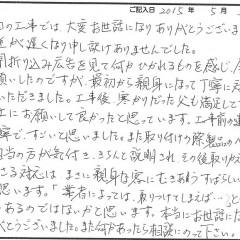 ご記入日 2015年 5月
の工事では、大変お世話になりありがとうございま
が遅くなり申し訳ありませんでした。
折り込み広告を見て何かひかれるものを感じ、
願いしたのですが、最初から親身になって丁寧に
いただきました。工事後、寒がりだった父も満足して
にお願いして良かったと思っています。工事前の
寧で、すごいと思いました。また取り付けの際、製品の
担当の方が気付き、きちんと説明され、その後取りかえ
さる対応は、まさに親身な客にむきあうすばらしい
思います。「業者によっては、取りつけてしまえば…」と
あるのではないかと思います。本当にお世話に
とうございました。また何かあったら相談にのって下さい。